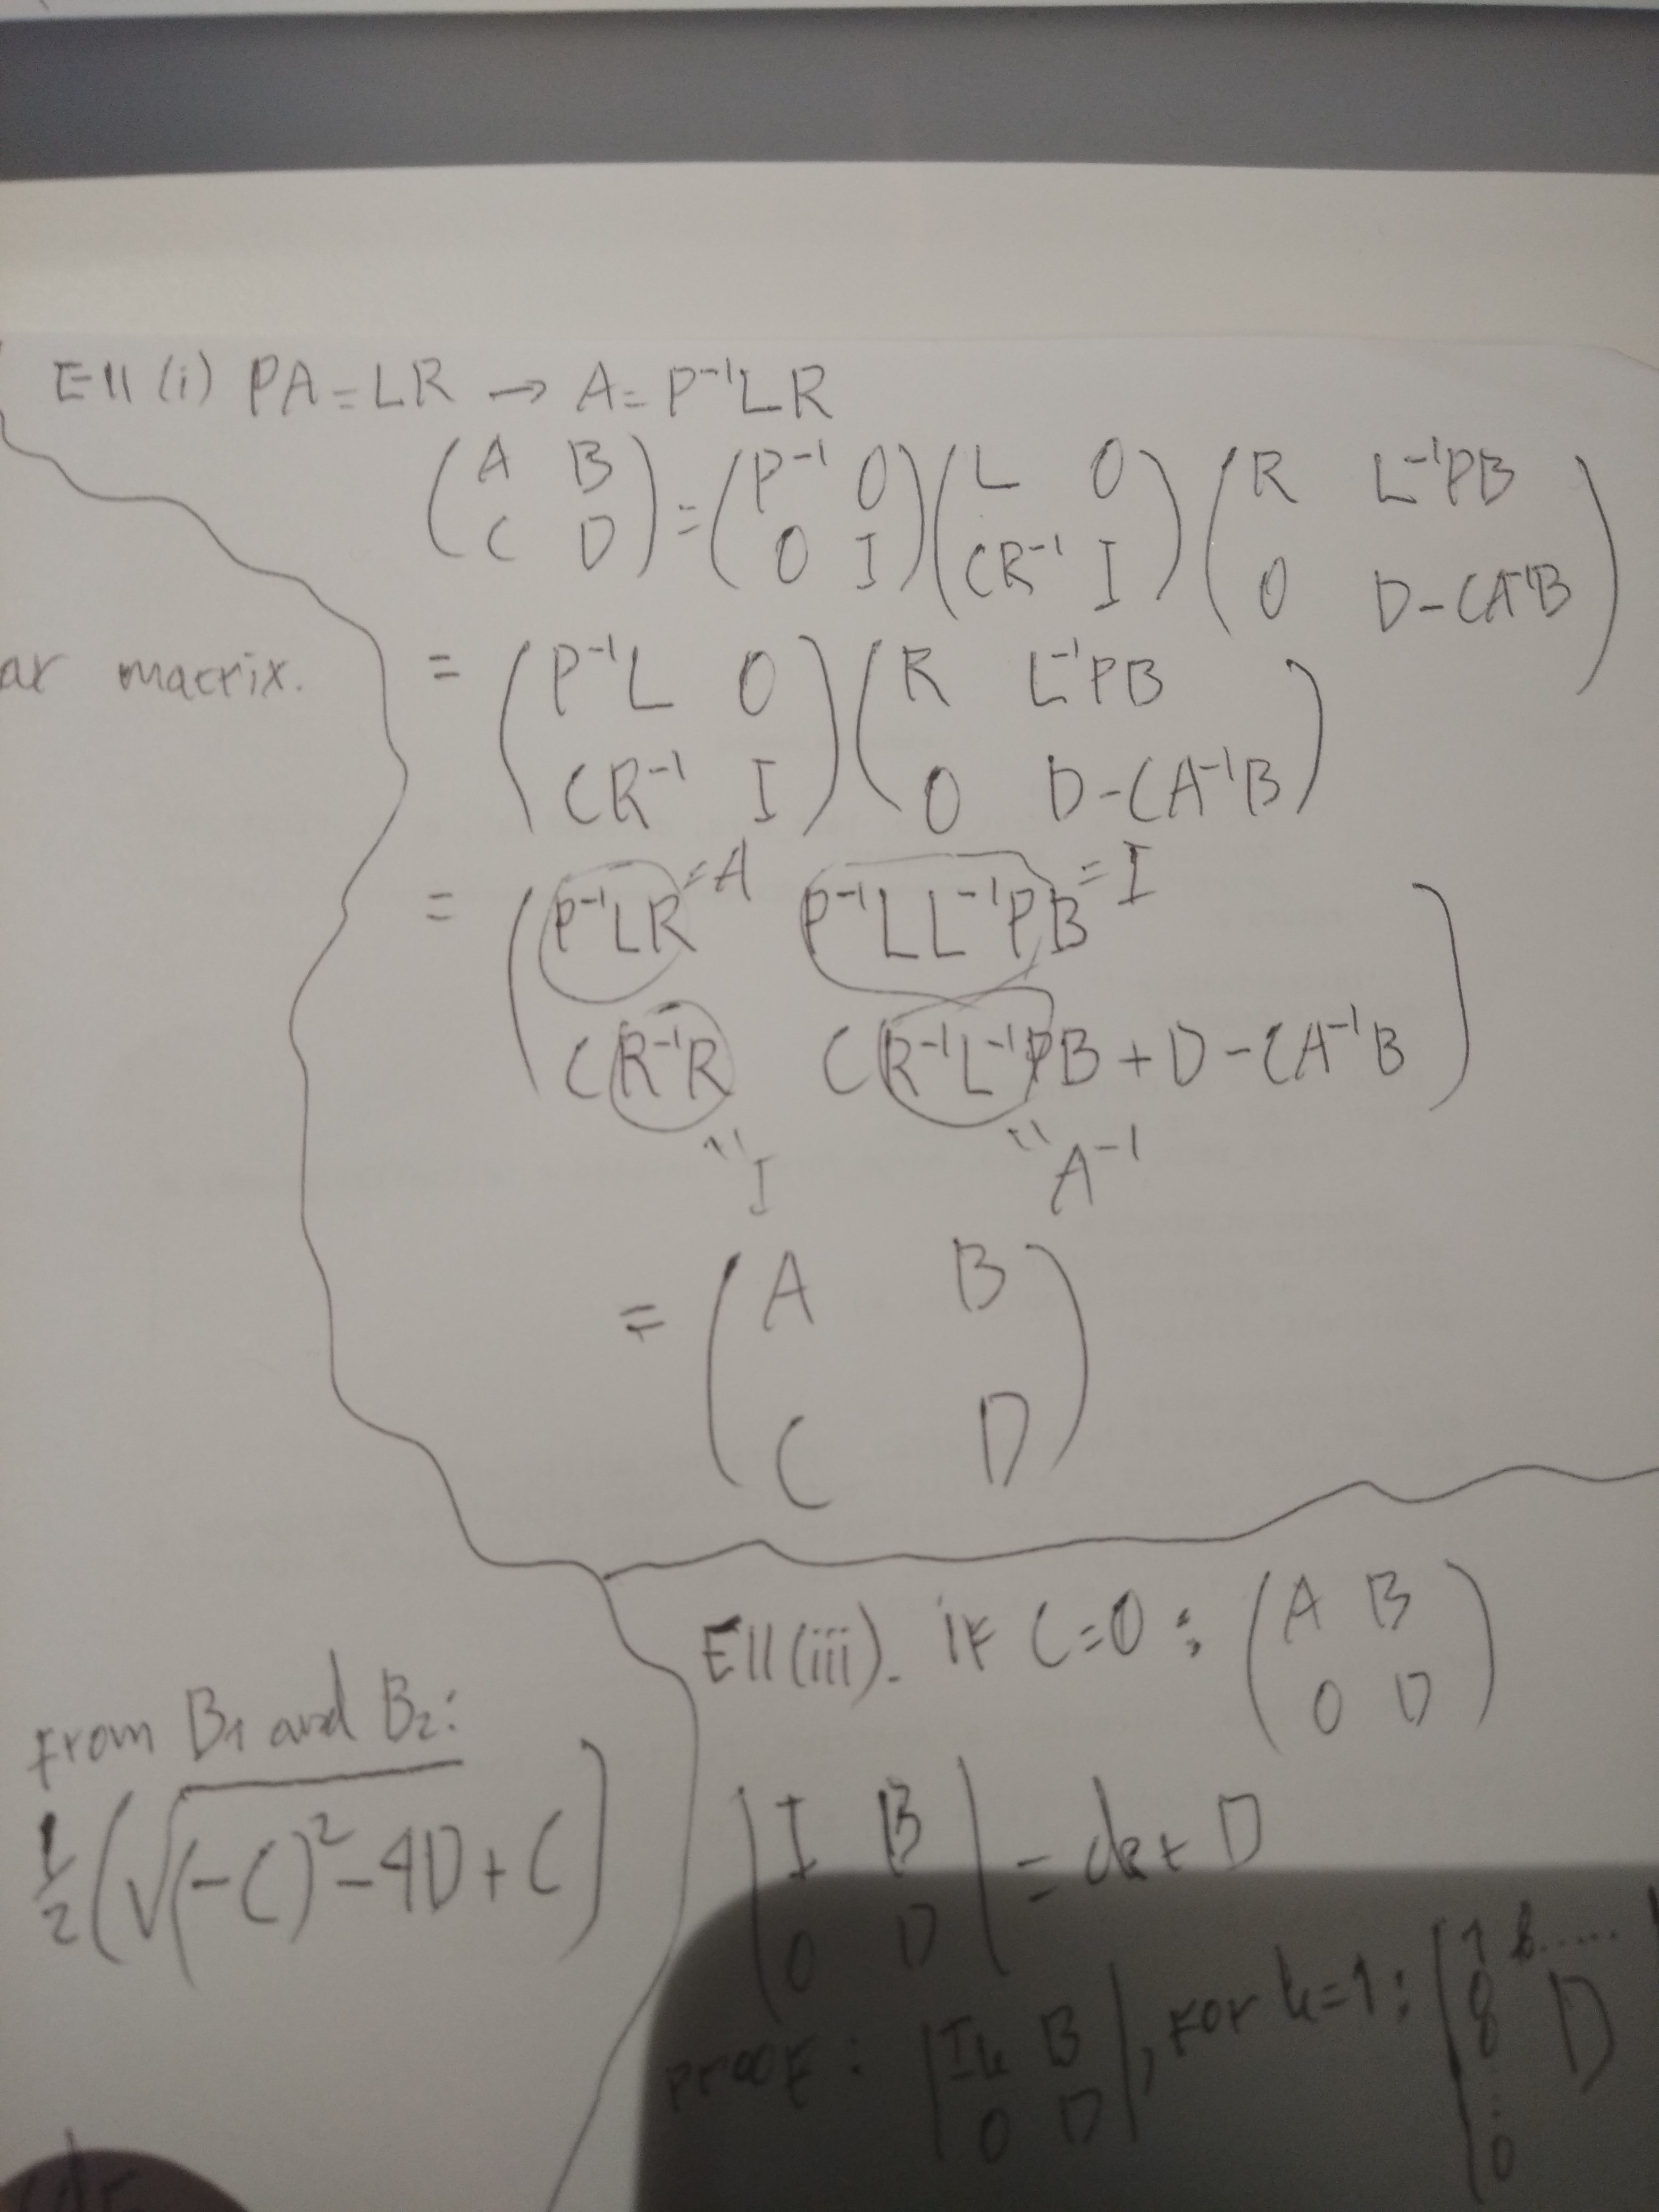 E11 (i) PA = LR → A = P⁻¹LR
(A B; C D) = (P⁻¹ 0; 0 I)(L 0; CR⁻¹ I)(R L⁻¹PB; 0 D-CA⁻¹B)
ar matrix.
= (P⁻¹L 0; CR⁻¹ I)(R L⁻¹PB; 0 D-CA⁻¹B)
= (P⁻¹LR P⁻¹LL⁻¹PB; CR⁻¹R CR⁻¹L⁻¹PB + D - CA⁻¹B)
=A =I
"I "A⁻¹
= (A B; C D)
E11(iii). if C=0 : (A B; 0 D)
From B₁ and B₂:
½(√((-C)²-4D) + C)
|I B; 0 D| = det D
proof: |Iₖ B; 0 D|, for k=1: |1 b.....; 0 0 : 0 D|